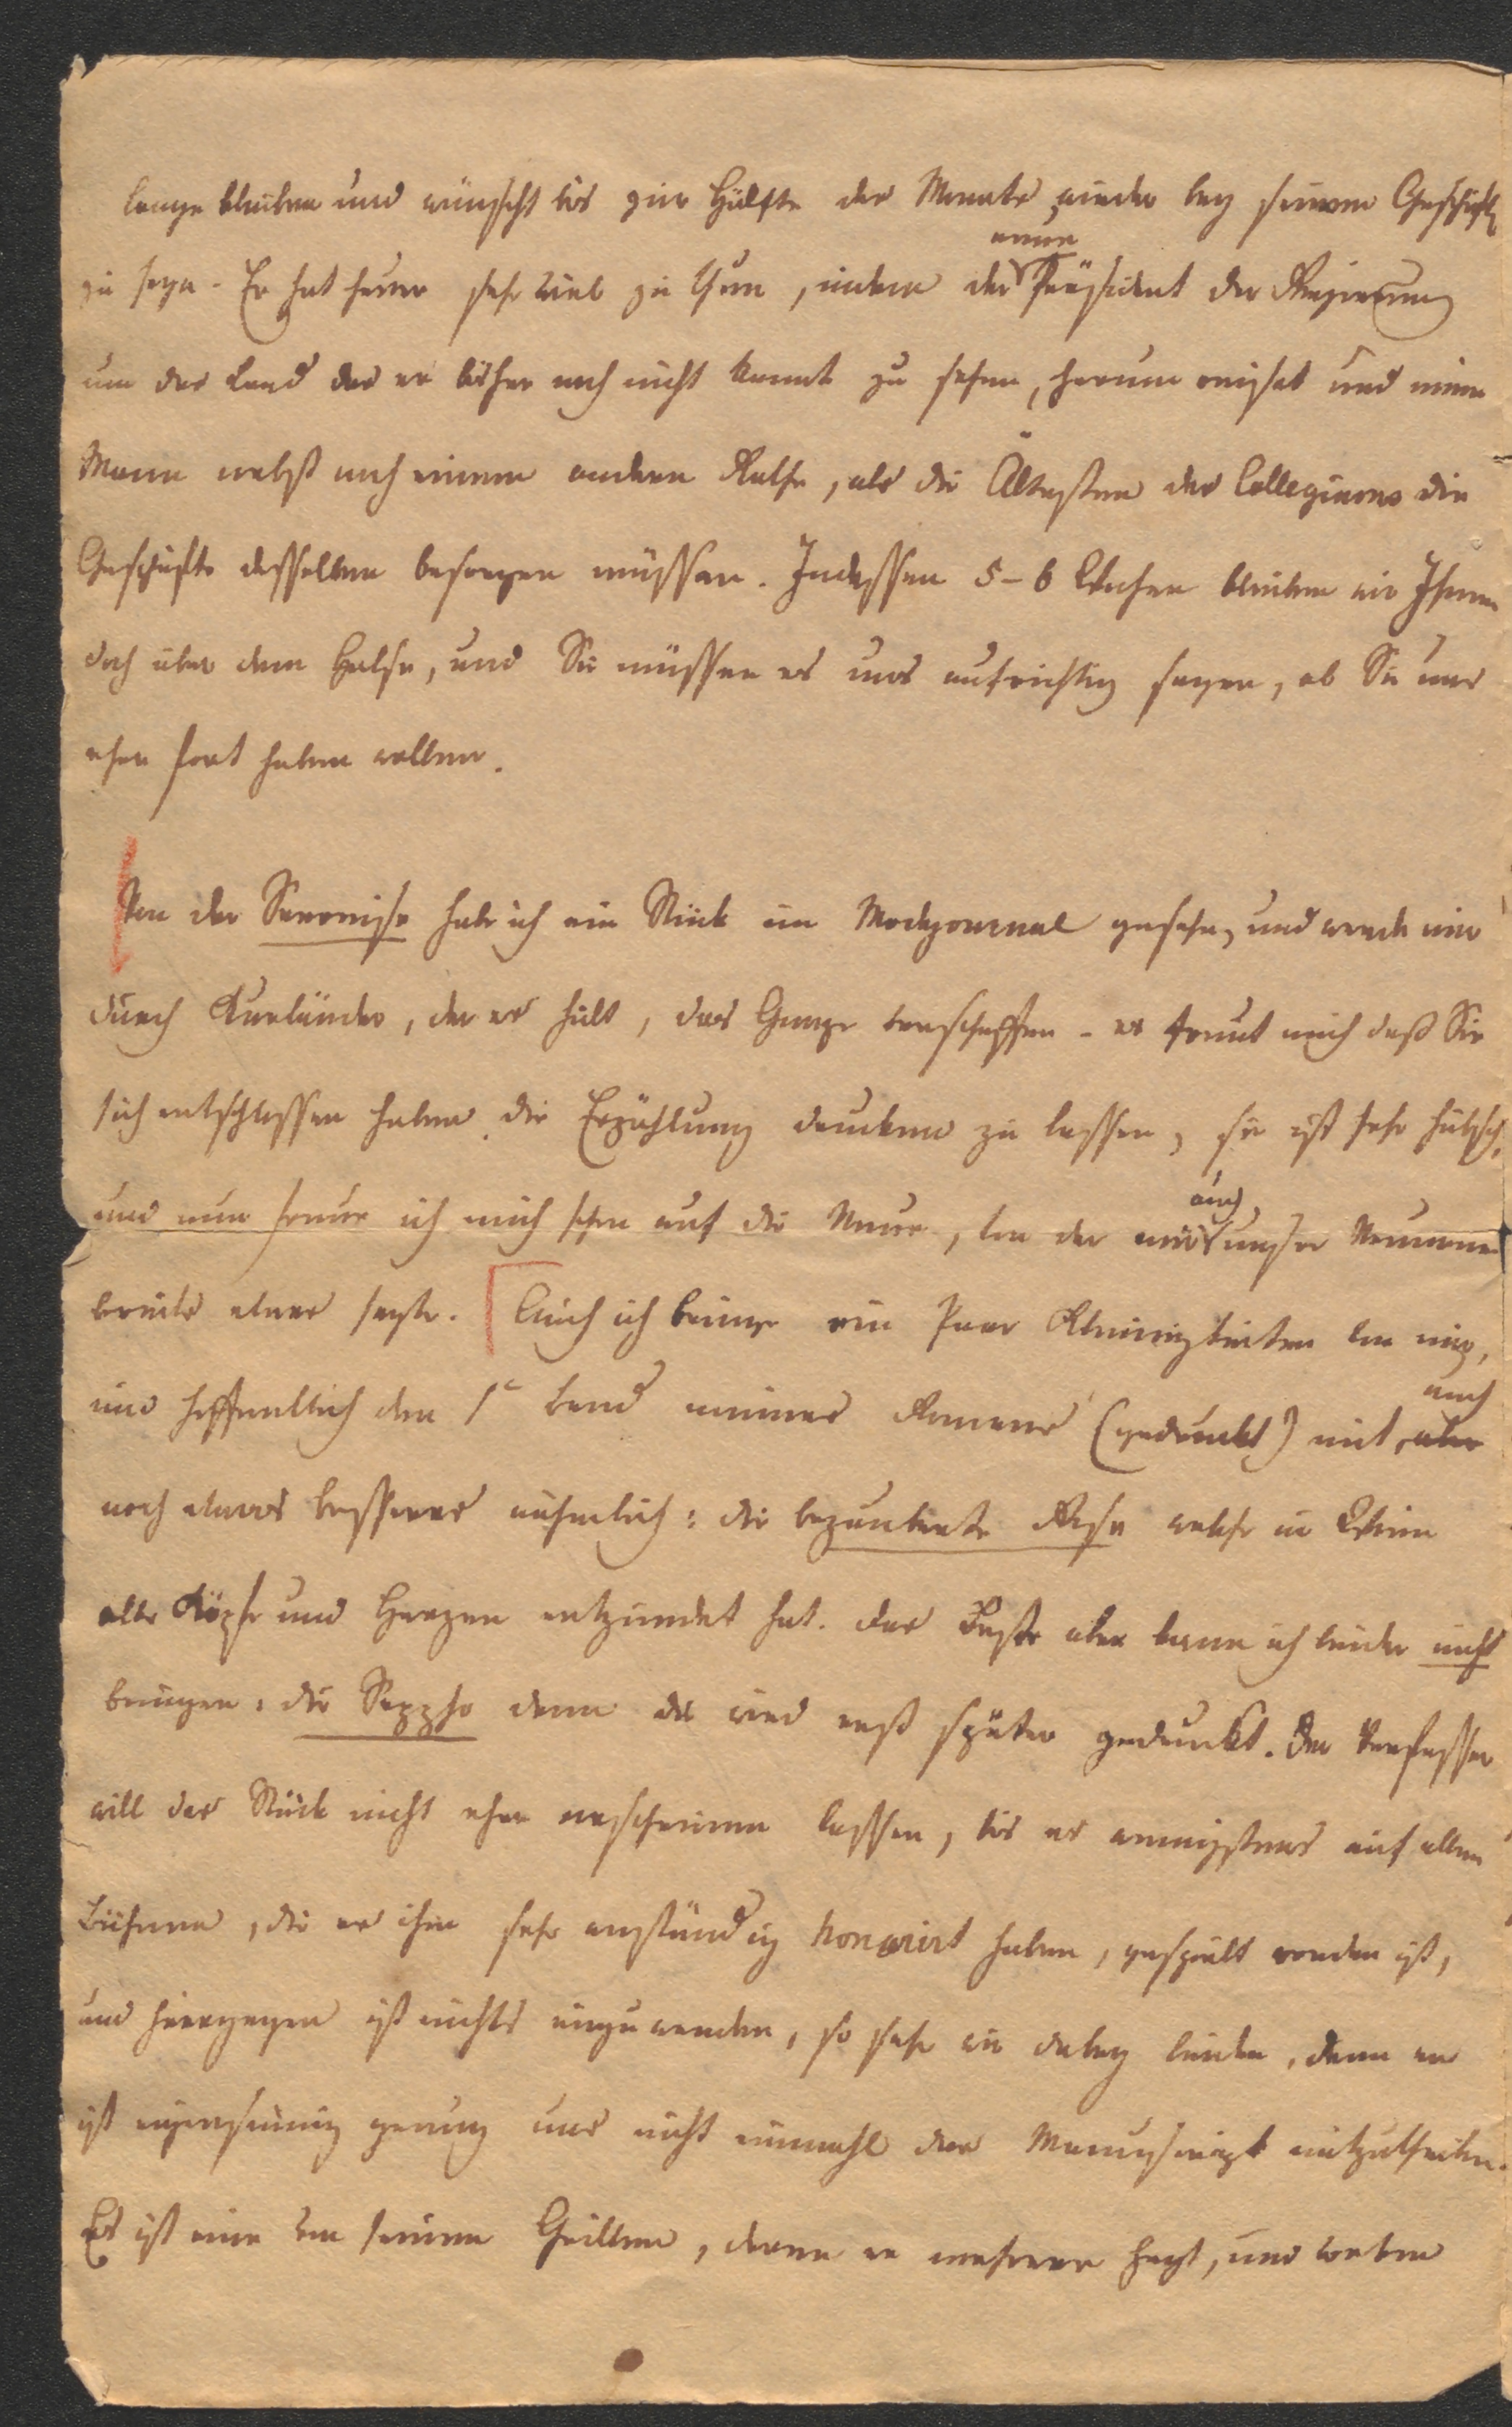 lange bleiben und wünscht bis zur Hälfte des Monats wieder bey seinen Geschäften
zu seyn. Er hat heuer sehr viel zu thun, indem der neue Präsident der Regierung
um das Land das er bisher noch nicht kennt zu sehen, herum reiset und mein
Mann nebst noch einem andern Rathe, als die Ältesten des Collegiums die
Geschäfte desselben besorgen müssen. Indessen 5-6 Wochen bleiben wir Ihnen
doch über dem Halse, und Sie müssen es uns aufrichtig sagen, ob Sie uns
eher fort haben wollen.
Von der habe ich ein Stück im Modejournal gesehen, und werde mir
durch Kurländer, der es hält, das Ganze verschaffen - es freut mich daß Sie
sich entschlossen haben die Erzählung drucken zu lassen, sie ist sehr hübsch,
und nun freue ich mich schon auf die Neue, von der mir auch unsre Neumann
bereits etwas sagte. Auch ich bringe ein Paar Kleinigkeiten von mir,
und hoffentlich den 1t Band meines Romans (gedruckt) mit, aber auch
noch etwas besseres nehmlich: die bezauberte Rose welche in Wien
alle Köpfe und Herzen entzündet hat. Das Beste aber kann ich leider nicht
bringen: die Sappho denn die wird erst später gedruckt. Der Verfasser
will das Stück nicht eher erscheinen lassen, bis es wenigstens auf allen
Bühnen, die es ihm sehr anständig honorirt haben, gespielt worden ist,
und hiergegen ist nichts einzuwenden, so sehr wir dabey leiden, denn er
ist eigensinnig genug uns nicht einmahl das Manuscript mitzutheilen.
Es ist eine von seinen Grillen, deren er mehrere hegt, und